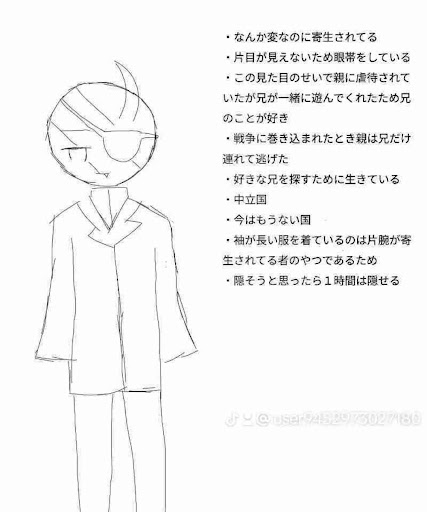 ・なんか変なのに寄生されてる
・片目が見えないため眼帯をしている
・この見た目のせいで親に虐待されて
いたが兄が一緒に遊んでくれたため兄
のことが好き
・戦争に巻き込まれたとき親は兄だけ
連れて逃げた
・好きな兄を探すために生きている
・中立国
・今はもうない国
・袖が長い服を着ているのは片腕が寄
生されてる者のやつであるため
・隠そうと思ったら１時間は隠せる
@ user9452973027180